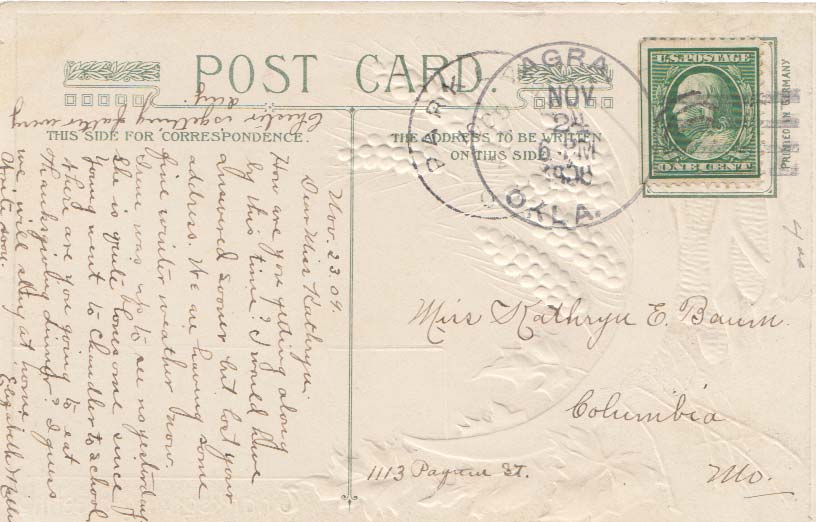 POST CARD.
THIS SIDE FOR CORRESPONDENCE.
THE ADDRESS TO BE WRITTEN
ON THIS SIDE.
AGRA
NOV
6-PM
OKLA.
U.S. POSTAGE
ONE CENT
PRINTED IN GERMANY
Nov. 23. 09.
Dear Miss Kathryn:
How are you getting along
by this time? I would have
answered sooner but lost your
address. We are having some
fine winter weather now.
was up to see us yesterday
She is quite lonesome since
Young went to Chandler to school
Where are you going to eat
Thanksgiving dinner? I guess
we will stay at home
Write soon.
Elizabeth
is getting fatter every
day.
Miss Kathryn E. Baum.
Columbia
1113 St.
Mo.